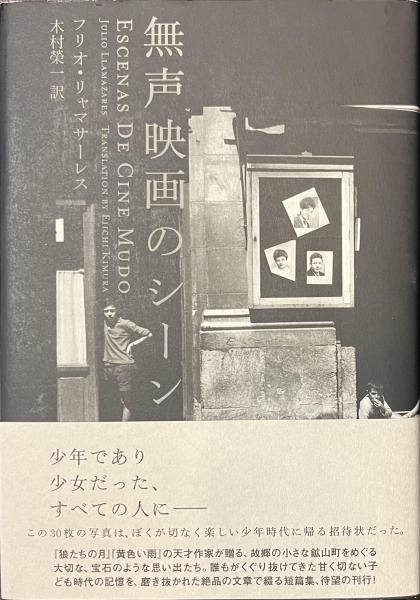 無声映画のシーン
ESCENAS DE CINE MUDO
JULIO LLAMAZARES TRANSLATION BY EIICHI KIMURA
フリオ・リャマサーレス
木村榮一 訳
少年であり
少女だった、
すべての人に――
この30枚の写真は、ぼくが切なく楽しい少年時代に帰る招待状だった。
『狼たちの月』『黄色い雨』の天才作家が贈る、故郷の小さな鉱山町をめぐる
大切な、宝石のような思い出たち。誰もがくぐり抜けてきた甘く切ない子
ども時代の記憶を、磨き抜かれた絶品の文章で綴る短篇集、待望の刊行!